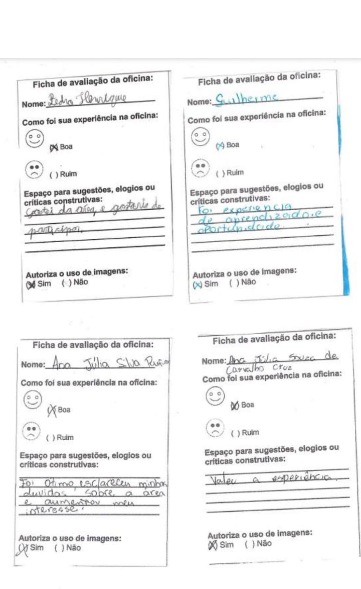 Ficha de avaliação da oficina:
Nome: Pedro Henrique
Como foi sua experiência na oficina:
(X) Boa
( ) Ruim
Espaço para sugestões, elogios ou
críticas construtivas:
gostei da área, e gostaria de
participar
Autoriza o uso de imagens:
(X) Sim ( ) Não
Ficha de avaliação da oficina:
Nome: Guilherme
Como foi sua experiência na oficina:
(X) Boa
( ) Ruim
Espaço para sugestões, elogios ou
críticas construtivas:
Foi experiencia
de aprendizado e
oportunidade
Autoriza o uso de imagens:
(X) Sim ( ) Não
Ficha de avaliação da oficina:
Nome: Ana Júlia Silva
Como foi sua experiência na oficina:
(X) Boa
( ) Ruim
Espaço para sugestões, elogios ou
críticas construtivas:
Foi ótimo, esclareceu minhas
duvidas sobre a area
e aumentou meu
interesse.
Autoriza o uso de imagens:
(X) Sim ( ) Não
Ficha de avaliação da oficina:
Nome: Ana Júlia Souza de
Carvalho Cruz
Como foi sua experiência na oficina:
(X) Boa
( ) Ruim
Espaço para sugestões, elogios ou
críticas construtivas:
Valeu a experiência.
Autoriza o uso de imagens:
(X) Sim ( ) Não